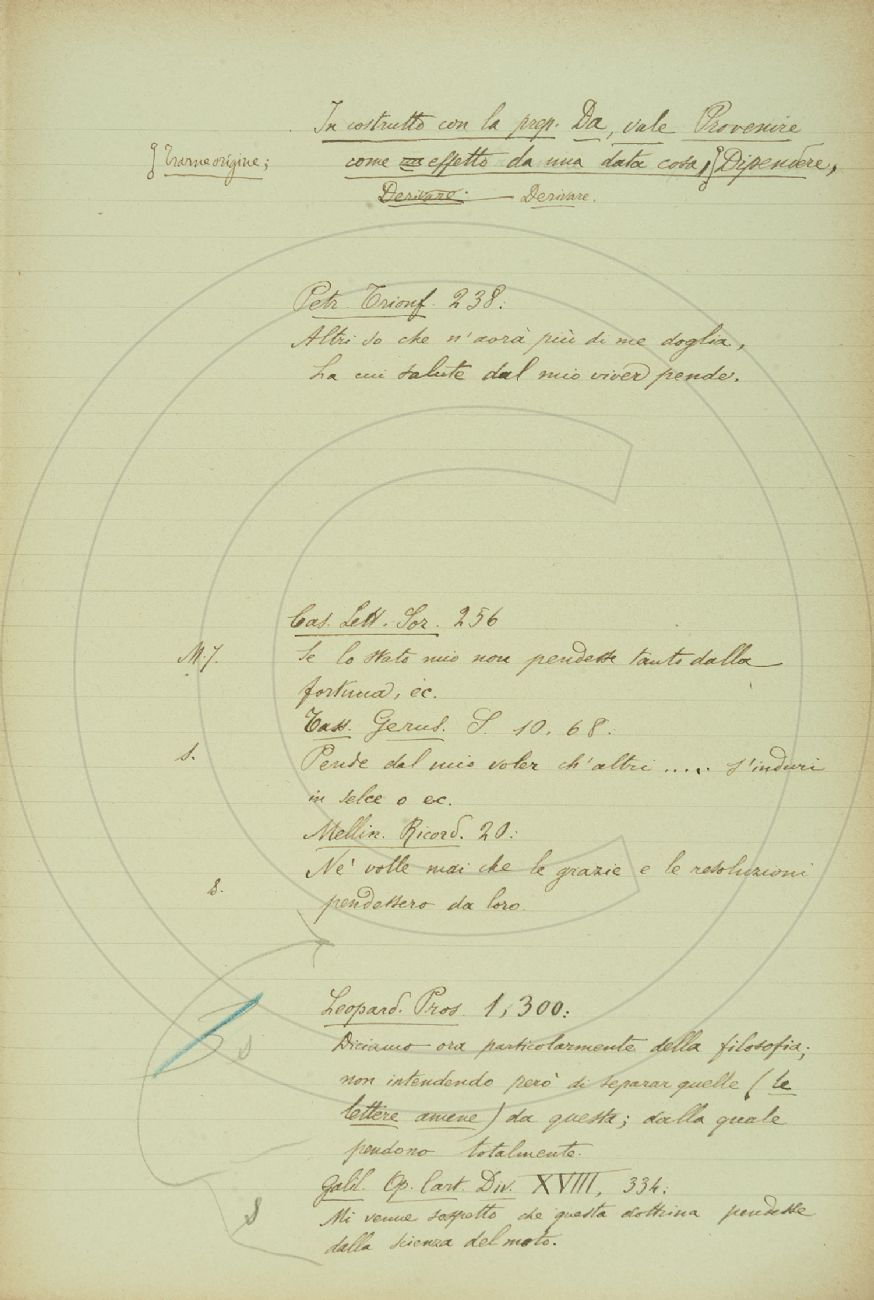 In costrutto con la prep. Da, vale Provenire
Trarne origine;
come effetto da una data cosa, Dipendere,
Derivare. Derivare.
Petr. Trionf. 238:
Altri so che n'avrà più di me doglia,
La cui salute dal mio viver pende.
Cas. Lett. Sor. 256
M. 7. Se lo stato mio non pendesse tanto dalla
fortuna, ec.
Tass. Gerus. S. 10. 68.
S. Pende dal mio voler ch'altri .... s'induri
in selce o ec.
Mellin. Ricord. 20:
Nè volle mai che le grazie e le resoluzioni
S. pendessero da loro.
Leopard. Pros. 1, 300:
S Diciamo ora particolarmente della filosofia;
non intendendo però di separar quelle (le
lettere amene) da questa; dalla quale
pendono totalmente.
Galil. Op. Cart. Div. XVIII, 334:
S Mi venne sospetto che questa dottrina pendesse
dalla scienza del moto.